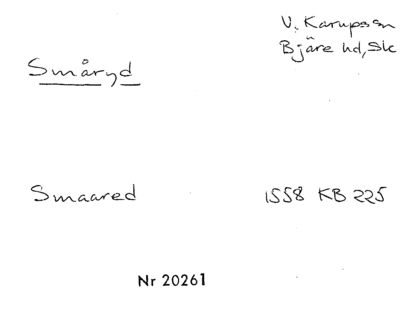 V. Karupssn
Bjäre hd, Sk
Småryd
Smaared 1558 KB 225
Nr 20261